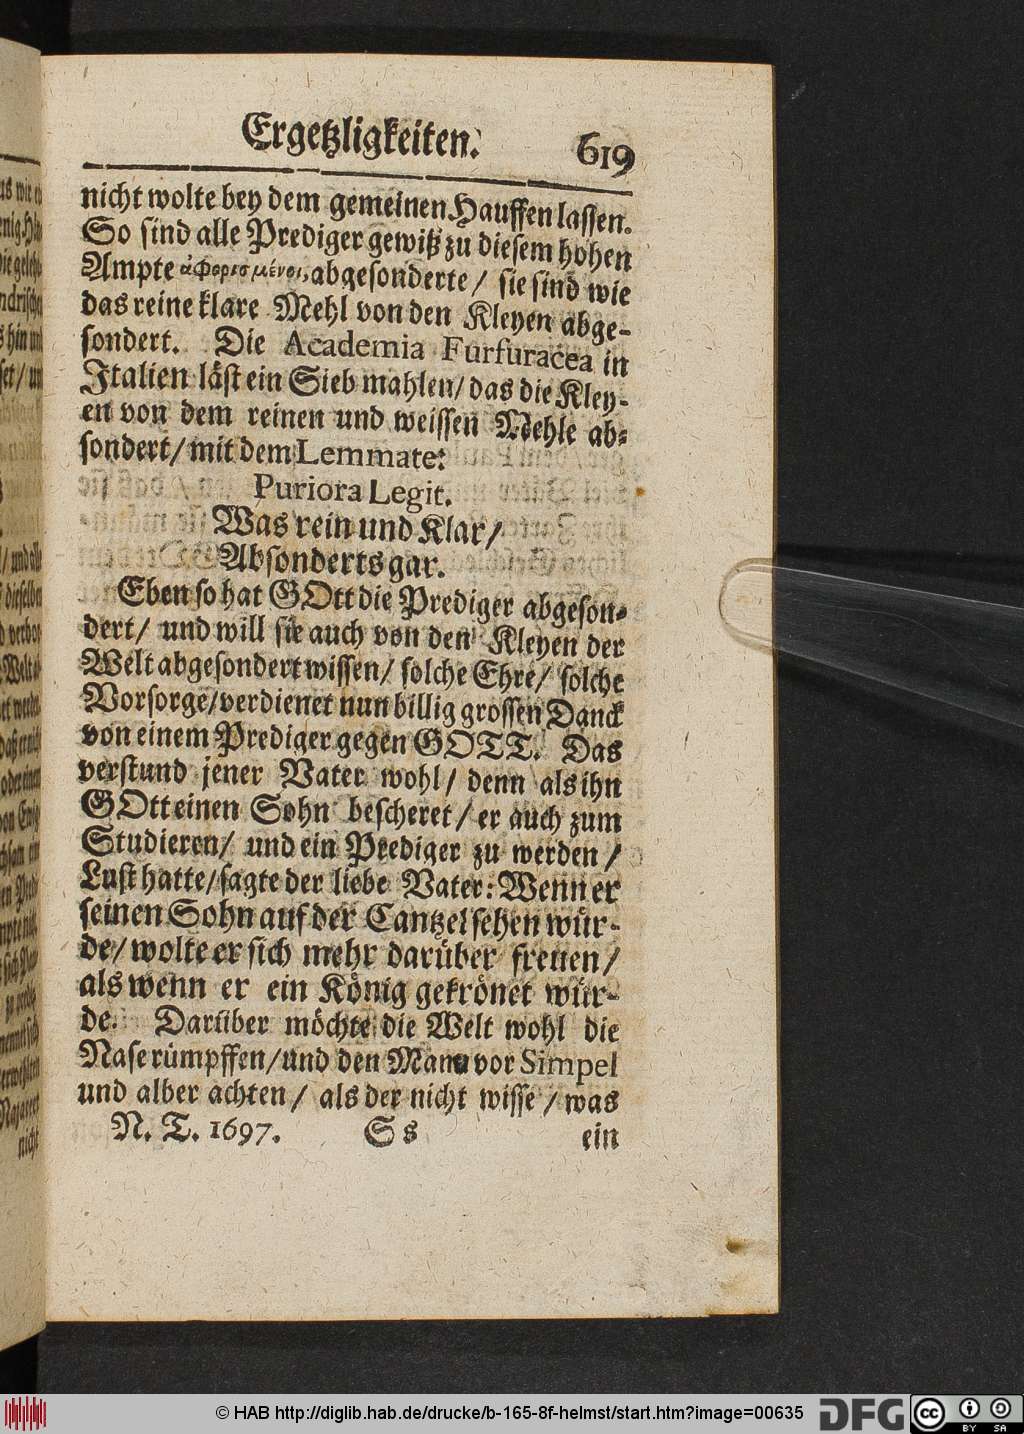 Ergetzligkeiten. 619
nicht wolte bey dem gemeinen Hauffen lassen.
So sind alle Prediger gewiß zu diesem hohen
Ampte ἀφορισμένοι, abgesonderte / sie sind wie
das reine klare Mehl von den Kleyen abge-
sondert. Die Academia Furfuracea in
Italien läst ein Sieb mahlen / das die Kley-
en von dem reinen und weissen Mehle ab-
sondert / mit dem Lemmate:
Puriora Legit.
Was rein und Klar /
Absonderts gar.
Eben so hat GOtt die Prediger abgeson-
dert / und will sie auch von den Kleyen der
Welt abgesondert wissen / solche Ehre / solche
Vorsorge / verdienet nun billig grossen Danck
von einem Prediger gegen GOTT. Das
verstund jener Vater wohl / denn als ihn
GOtt einen Sohn bescheret / er auch zum
Studieren / und ein Prediger zu werden /
Lust hatte / sagte der liebe Vater: Wenn er
seinen Sohn auf der Cantzel sehen wür-
de / wolte er sich mehr darüber freuen /
als wenn er ein König gekrönet wür-
de. Darüber möchte die Welt wohl die
Nase rümpffen / und den Mann vor Simpel
und alber achten / als der nicht wisse / was
N. T. 1697. Ss ein
© HAB http://diglib.hab.de/drucke/b-165-8f-helmst/start.htm?image=00635
DFG
cc BY SA